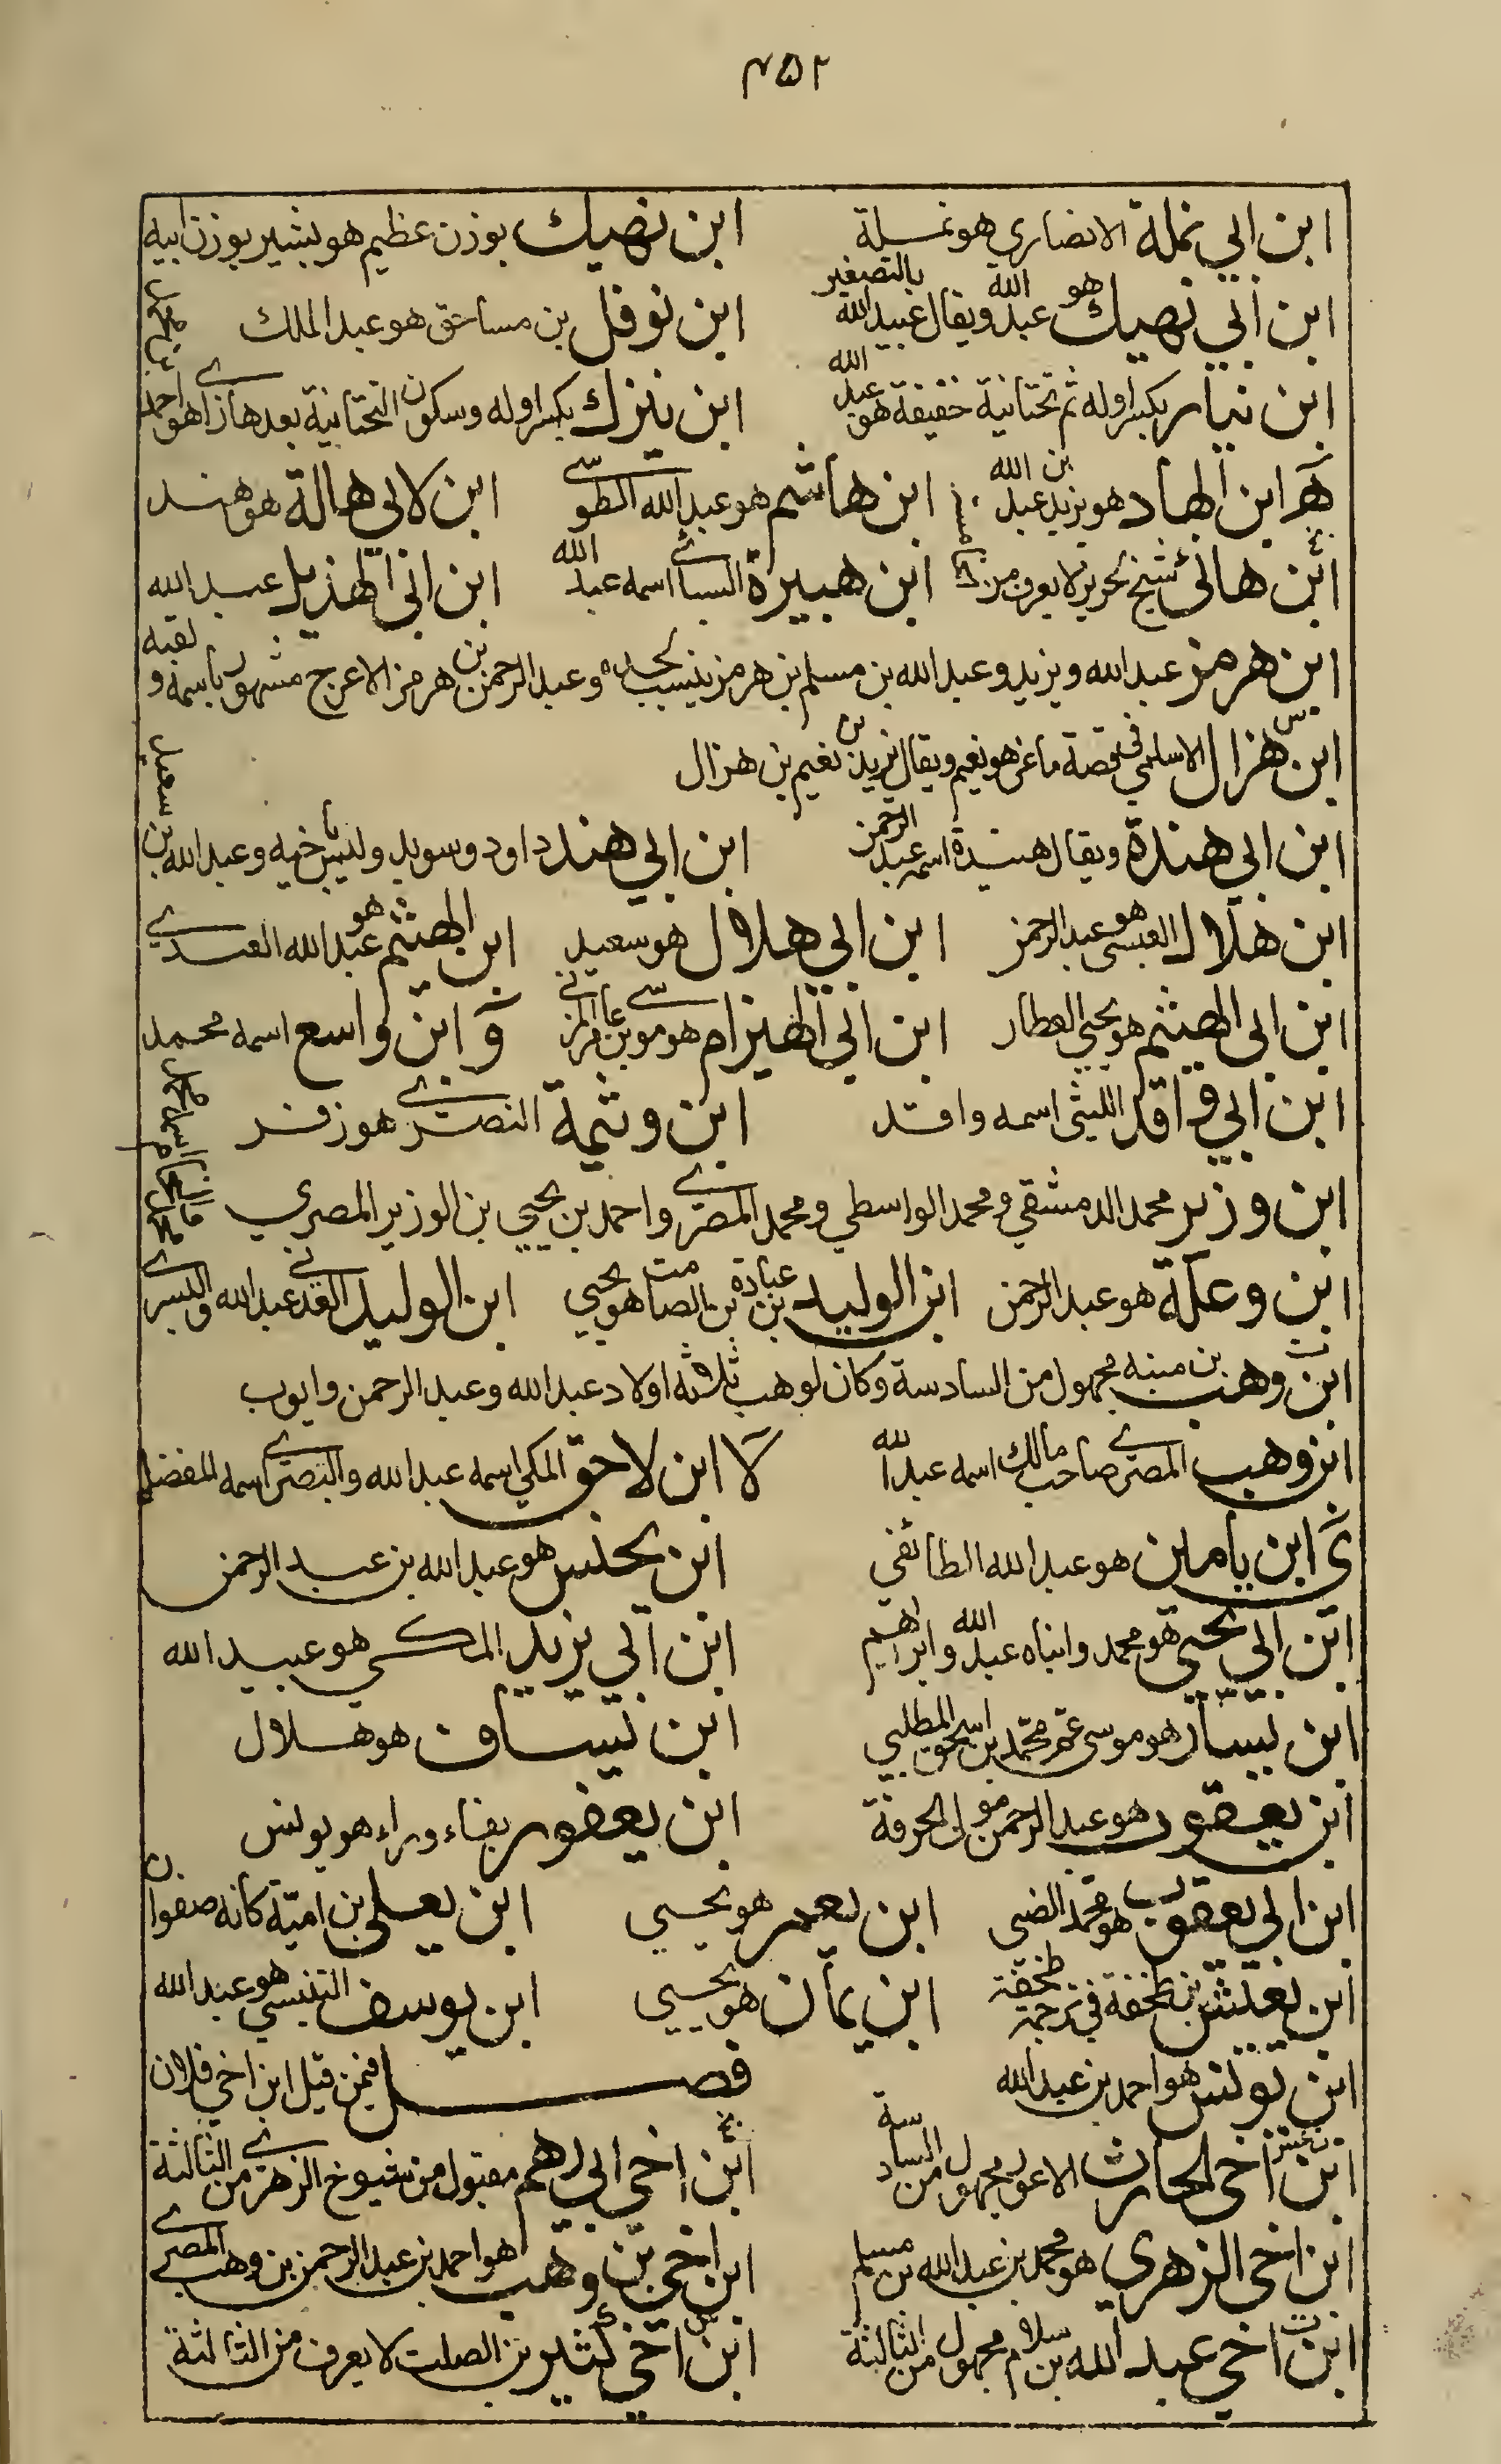 ٤٥٢
ابن ابي نملة الانصاري هو نملة ابن نهيك بوزن عظيم هو بشير بوزن ابيه
ابن ابي نهيك هو عبد الله ويقال عبيد الله بالتصغير ابن نوفل بن مساحق هو عبد الملك
ابن نيار بكسر اوله ثم تحتانية خفيفة هو عبد الله ابن نيزك بكسر اوله وسكون التحتانية بعدها زاي هو احمد بن محمد
ه ابن الهاد هو يزيد بن عبد الله ابن هاشم هو عبد الله الطوسي ابن لابي هالة هو هند
ابن هانئ شيخ لحريز لا يعرف من ابن هبيرة السبائي اسمه عبد الله ابن ابي الهذيل عبد الله
ابن هرمز عبد الله ويزيد وعبد الله بن مسلم بن هرمز ينسب لجده وعبد الرحمن بن هرمز الاعرج مشهور باسمه ولقبه
ابن هزال الاسلمي في قصة ماعز هو نعيم ويقال يزيد بن نعيم بن هزال
ابن ابي هندة ويقال هنيدة اسمه عبد الرحمن ابن ابي هند داود وسويد وليس باخيه وعبد الله بن سعيد
ابن هلال العبسي هو عبد الرحمن ابن ابي هلال هو سعيد ابن الهيثم هو عبد الله العبدي
ابن ابي الهيثم هو يحيى العطار ابن ابي الهيزام هو موسى بن عامر المزاني و ابن واسع اسمه محمد
ابن ابي واقد الليثي اسمه واقد ابن وثيمة النصري هو زفر
ابن وزير محمد الدمشقي ومحمد الواسطي ومحمد المصري واحمد بن يحيى بن الوزير المصري
ابن وعلة هو عبد الرحمن ابن الوليد بن عبادة بن الصامت هو يحيى ابن الوليد العدني عبد الله
ابن وهب بن منبه مجهول من السادسة وكان لوهب ثلاثة اولاد عبد الله وعبد الرحمن وايوب
ابن وهب المصري صاحب مالك اسمه عبد الله لا ابن لاحق المكي اسمه عبد الله والبصري اسمه المفضل
ي ابن يامين هو عبد الله الطائفي ابن يحنس هو عبد الله بن عبد الرحمن
ابن ابي يحيى هو محمد وابناه عبد الله وابراهيم ابن ابي يزيد المكي هو عبيد الله
ابن يسار هو موسى عم محمد بن اسحق المطلبي ابن يساف هو هلال
ابن يعقوب هو عبد الرحمن مولى الحرقة ابن يعفور بفاء وراء هو يونس
ابن ابي يعقوب هو محمد الضبي ابن يعمر هو يحيى ابن يعلى بن امية كانه صفوان
ابن يعيش بن طخفة في ترجمة طخفة ابن يمان هو يحيى ابن يوسف التنيسي هو عبد الله
ابن يونس هو احمد بن عبد الله فصل فيمن قيل ابن اخي فلان
ابن اخي الحارث الاعور مجهول من السادسة ابن اخي ابي رهم مقبول من شيوخ الزهري من الثالثة
ابن اخي الزهري هو محمد بن عبد الله بن مسلم ابن اخي بن وهب هو احمد بن عبد الرحمن بن وهب المصري
ابن اخي عبد الله بن سلام مجهول من الثالثة ابن اخي كثير بن الصلت لا يعرف من الثالثة